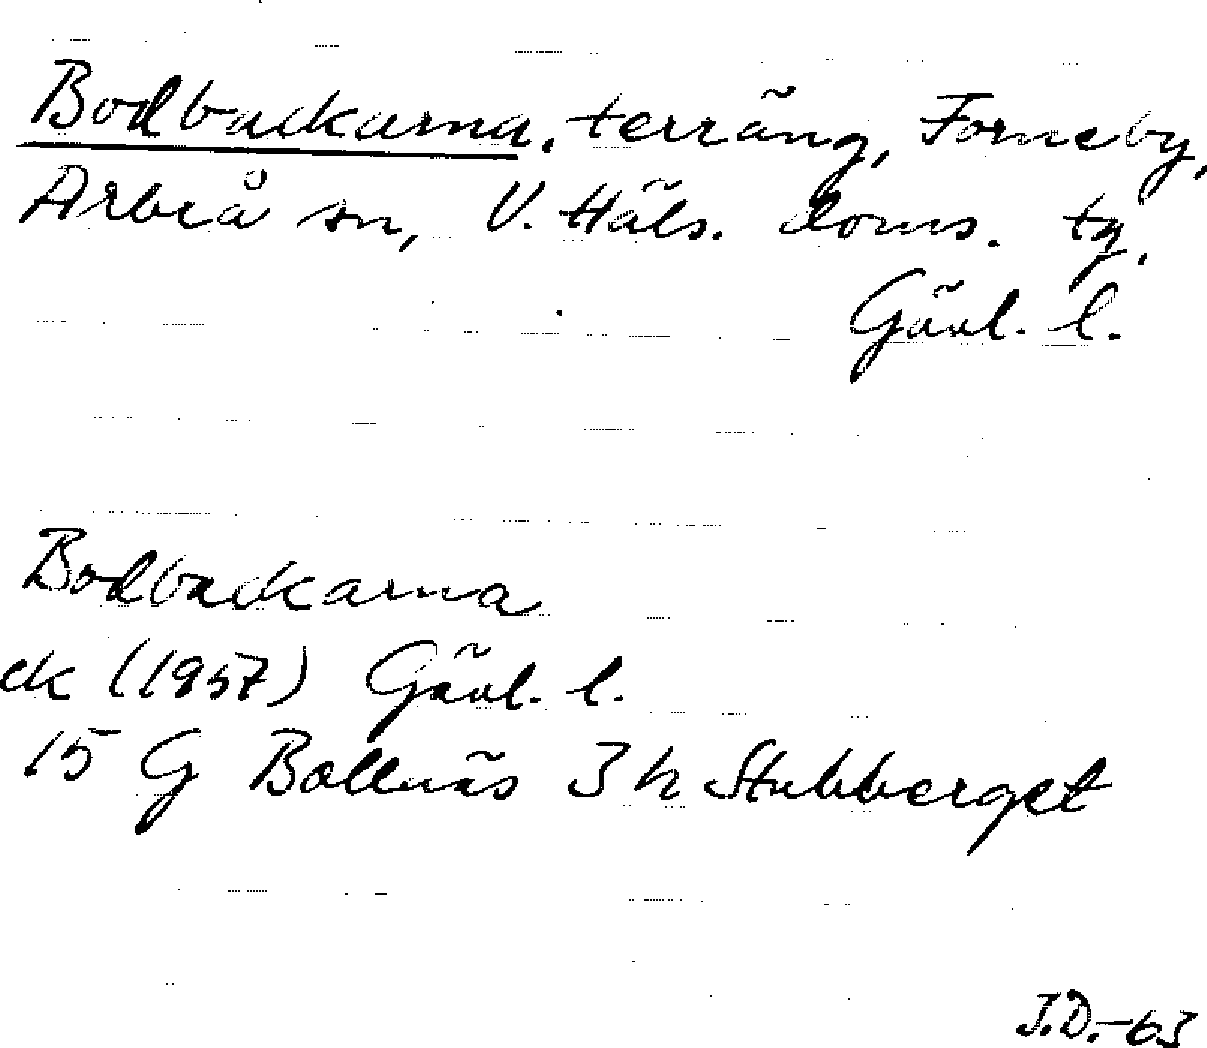 Bodbackarna, terräng, Forneby,
Arbrå sn, V. Häls. doms. tg,
Gävl. l.
Bodbackarna
ek (1957) Gävl. l.
15 G Bollnäs 3 h Stubberget
J.D.-63